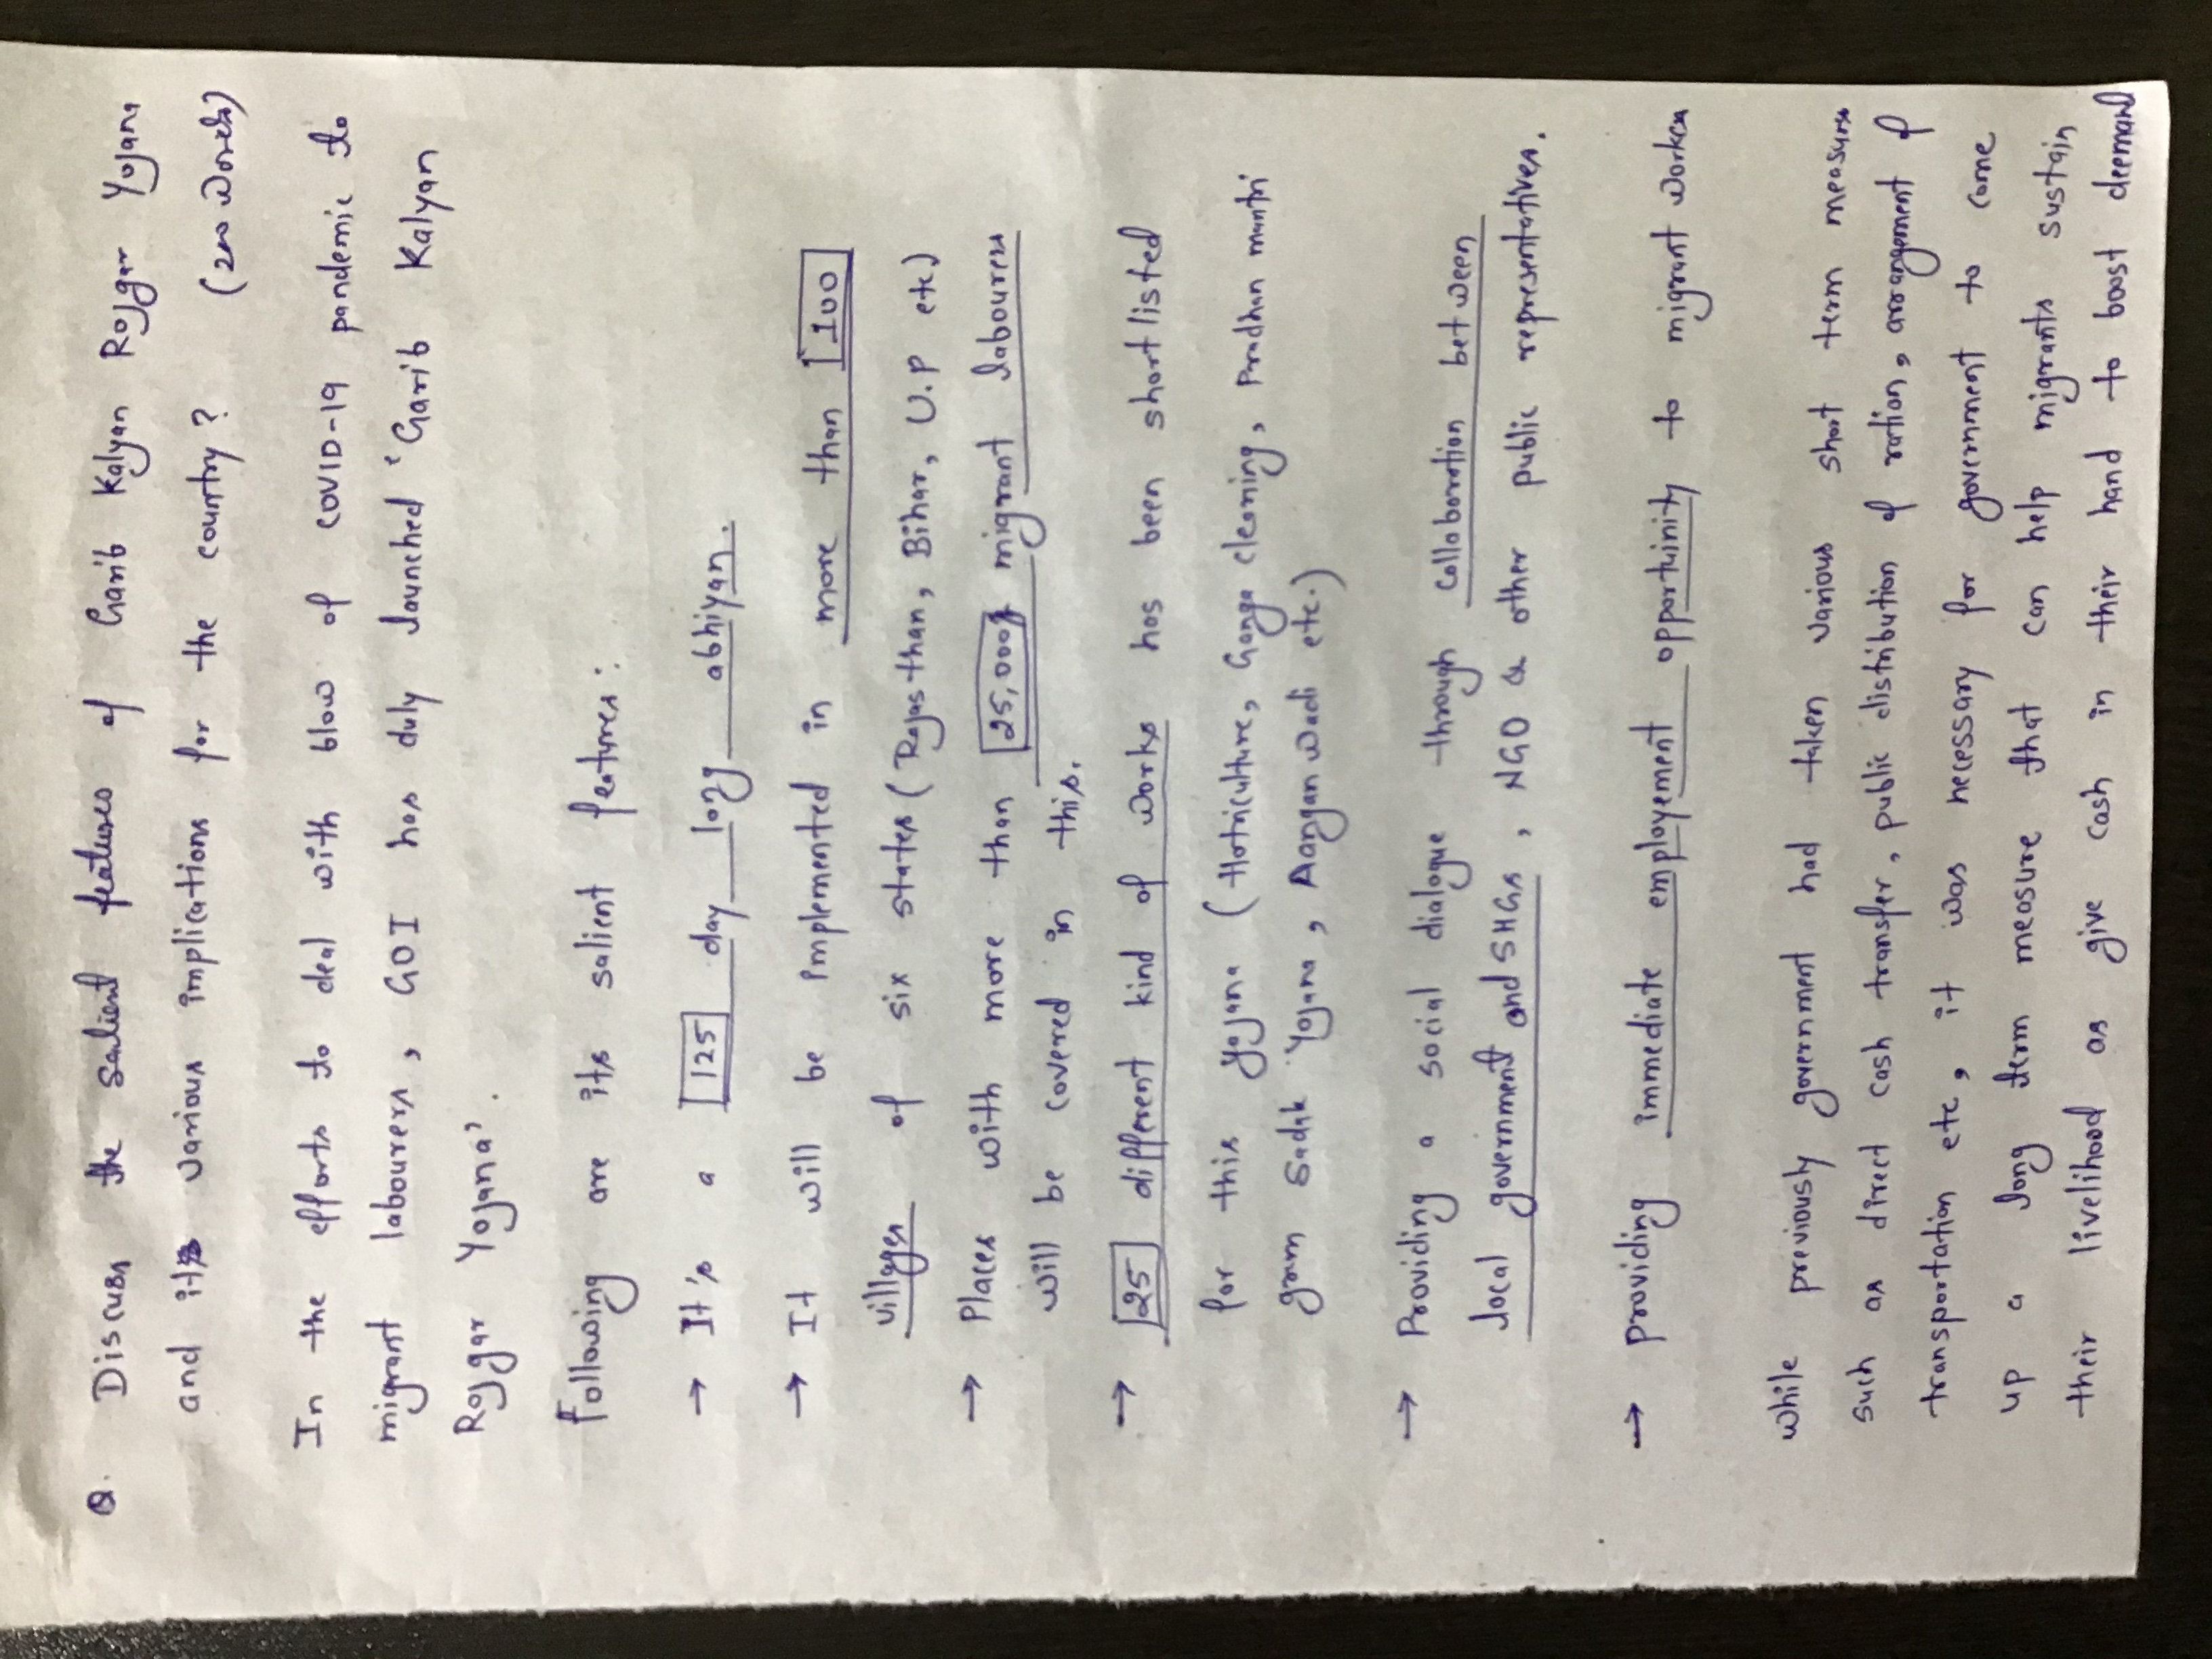 Q. Discuss the salient features of Garib Kalyan Rojgar Yojana
and its various implications for the country? (200 words)
In the efforts to deal with blow of COVID-19 pandemic to
migrant labourers, GOI has duly launched 'Garib Kalyan
Rojgar Yojana'.
Following are its salient features:
→ It's a 125 day long abhiyan.
→ It will be implemented in more than 100
villages of six states (Rajasthan, Bihar, U.P etc)
→ Places with more than 25,000 migrant labourers
will be covered in this.
→ 25 different kind of works has been shortlisted
for this yojana (Hotriculture, Ganga cleaning, Pradhan mantri
gram Sadak Yojana, Aangan wadi etc.)
→ Providing a social dialogue through collaboration between
local government and SHGs, NGO & other public representatives.
→ Providing immediate employement opportuinity to migrant workers
While previously government had taken various short term measures
such as direct cash transfer, public distribution of ration, arrangement of
transportation etc, it was necessary for government to come
up a long term measure that can help migrants sustain
their livelihood as give cash in their hand to boost deemand